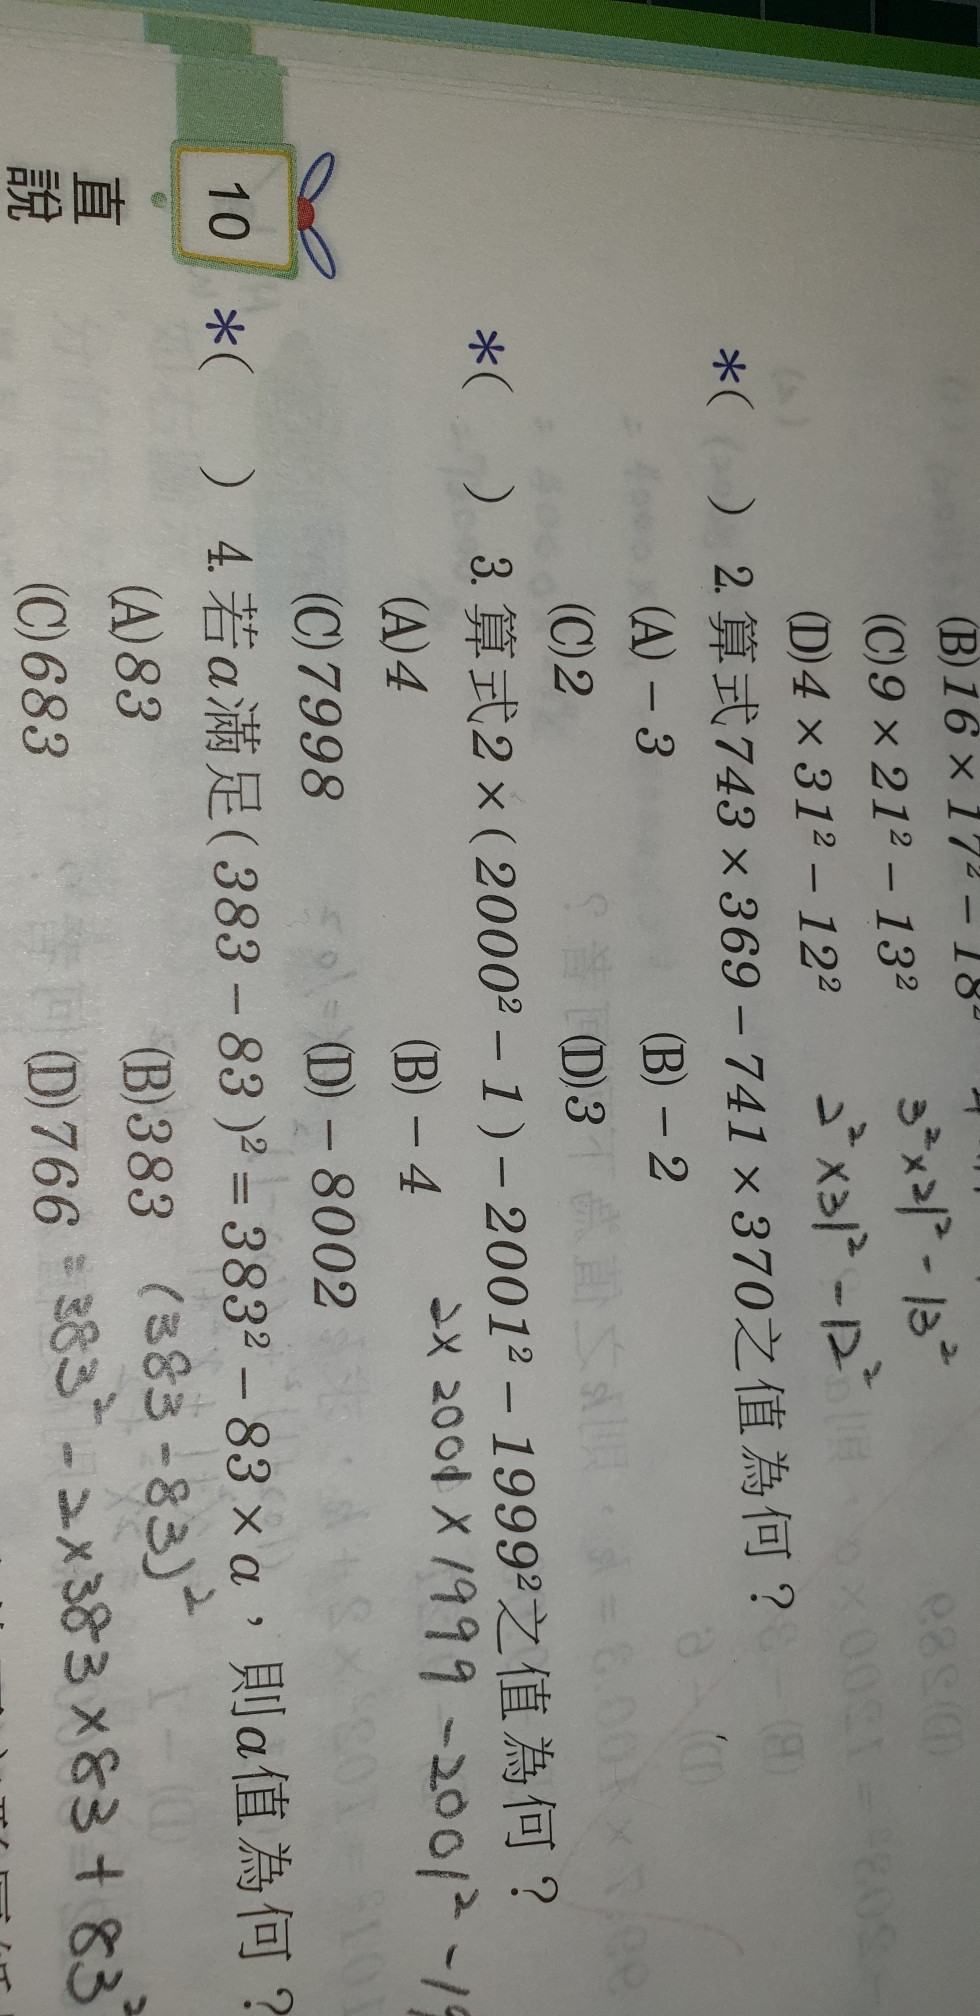 (B)16×17²－18²
(C)9×21²－13² 3²×21²-13²
(D)4×31²－12² 2²×31²-12²
*(　) 2. 算式743×369－741×370之值為何？
(A)－3 (B)－2
(C)2 (D)3
*(　) 3. 算式2×(2000²－1)－2001²－1999²之值為何？
(A)4 (B)－4 2×2001×1999-2001²-19
(C)7998 (D)－8002
*(　) 4. 若a滿足(383－83)²＝383²－83×a，則a值為何？
(A)83 (B)383 (383-83)²
(C)683 (D)766 =383²-2×383×83+83²
10
直
說